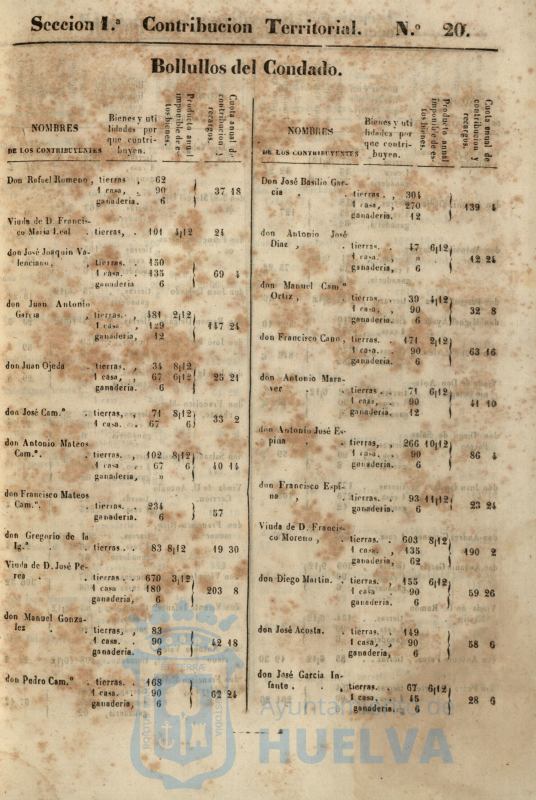 Seccion 1.ª Contribucion Territorial. N.º 20.
Bollullos del Condado.
NOMBRES
DE LOS CONTRIBUYENTES
Bienes y uti
lidades por
que contri-
buyen.
Producto anual
imponible de es-
tos bienes.
Cuota anual de
contribucion y
recargos.
Don Rafael Romeno, tierras , 62
1 casa, , 90 37 18
ganaderia. 6
Viuda de D. Francis-
co Maria Leal . tierras, . 101 4|12 24
don José Joaquin Va-
lenciano, , tierras. . 450
1 casa. . 135 69 4
ganaderia 6
don Juan Antonio
Garcia , tierras. . 481 2|12
1 casa , 129 147 24
ganaderia, 12
don Juan Ojeda . tierras. . 34 8|12
1 casa, , 67 6|12 25 21
ganaderia. 6
don José Cam.º . tierras, , 71 8|12
1 casa. . 67 6 33 2
don Antonio Mateos
Cam.º. . tierras, , 102 8|12
1 casa . 67 6 40 14
ganaderia, »
don Francisco Mateos
Cam.º. . tierras. . 234
ganaderia. 6 57
don Gregorio de la
Ig.ª . tierras. . 83 8|12 19 30
Viuda de D. José Pe-
rea . tierras. . 670 3|12
1 casa . 180 203 8
ganaderia, 6
don Manuel Gonza-
lez . tierras, , 83
1 casa. . 90 42 18
ganaderia. 6
don Pedro Cam.º . tierras. . 168
1 casa. . 90 62 24
ganaderia, 6
NOMBRES
DE LOS CONTRIBUYENTES
Bienes y uti
lidades por
que contri-
buyen.
Producto anual
imponible de es-
tos bienes.
Cuota anual de
contribucion y
recargos.
Don José Basilio Gar-
cia , . tierras . 304
1 casa, , 270 139 4
ganaderia. 12
don Antonio José
Diaz , . tierras. . 47 6|12
1 casa. . » 12 24
ganaderia, 6
don Manuel Cam.º
Ortiz, . tierras, , 39 4|12
1 casa, . 90 32 8
ganaderia. 6
don Francisco Cano, tierras. . 171 2|12
1 casa. . 90 63 16
ganaderia. 6
don Antonio Mara-
ver . tierras . 71 6|12
1 casa, , 90 41 10
ganaderia. 12
don Antonio José Es-
pina . . tierras, , 266 10|12
1 casa. . 90 86 4
ganaderia, 6
don Francisco Espi-
na , . tierras. . 93 11|12
ganaderia. 6 23 24
Viuda de D. Francis-
co Moreno , tierras. . 603 8|12
1 casa, . 135 190 2
ganaderia, 62
don Diego Martin. . tierras. , 155 6|12
1 casa . 90 59 26
ganaderia, 6
don José Acosta. . tierras. . 149
1 casa, , 90 58 6
ganaderia, 6
don José Garcia In-
fante . , tierras. . 67 6|12
1 casa. . 45 28 6
ganaderia. 6
Ayuntamiento de
HUELVA